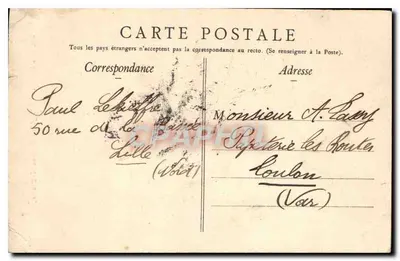 CARTE POSTALE
Tous les pays étrangers n'acceptent pas la correspondance au recto. (Se renseigner à la Poste).
Correspondance
Adresse
Paul
50 rue de la
Lille
(Nord)
Monsieur A.
Papeterie les Routes
Toulon
(Var)